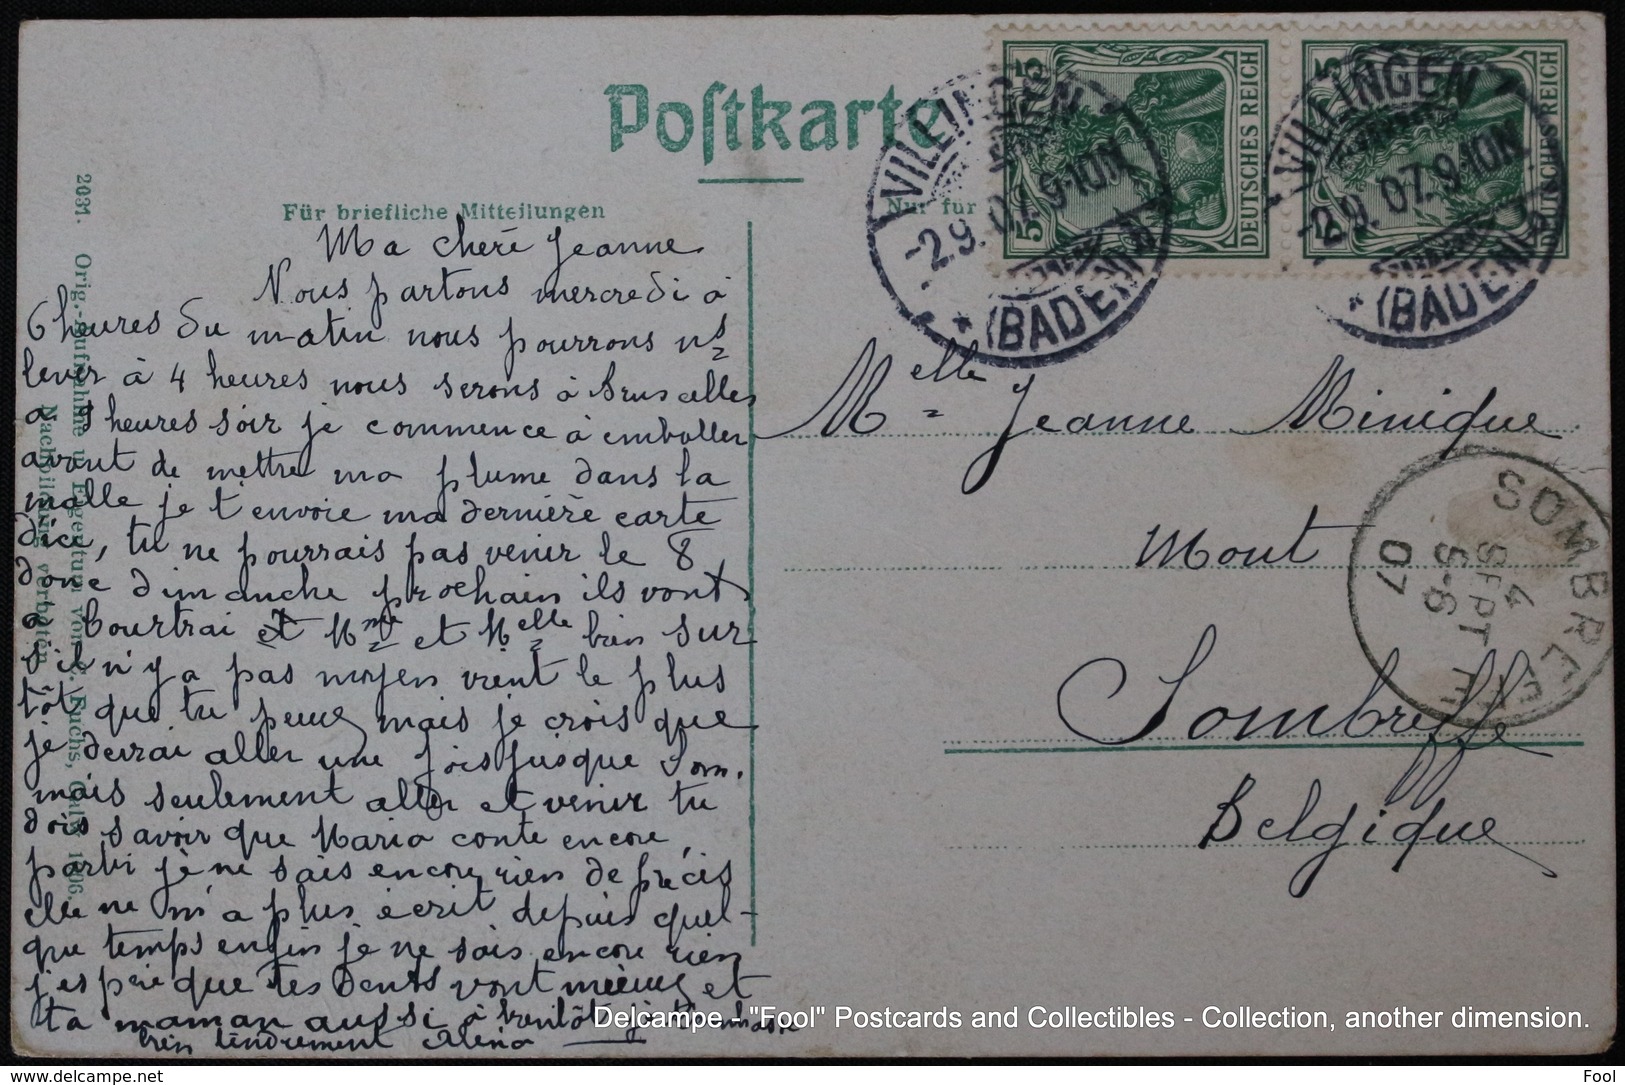 Postkarte
Für briefliche Mitteilungen
Nur für
Ma cheré Jeanne
Nous partons mercredi à
6 heures du matin nous pourrons ns
lever à 4 heures nous serons à Bruxelles
a 9 heures soir je commence à emballer
avant de mettre ma plume dans la
malle je t'envoie ma dernière carte
d'ici, tu ne pourrais pas venir le 8
donc dimanche prochain ils vont
a Courtrai et Mme et Melle bien sur
s'il n'y a pas moyen vient le plus
tôt que tu peux mais je crois que
je devrai aller une fois jusque Som.
mais seulement aller et venir tu
dois savoir que Maria conte encore
partir je ne sais encore rien de précis
elle ne m'a plus écrit depuis quel-
que temps enfin je ne sais encore rien
j'espère que tes dents vont mieux et
ta maman aussi à bientôt je t'embrasse
bien tendrement
Melle Jeanne Minique
Mont
Sombreffe
Belgique
5 5 DEUTSCHES REICH
5 5 DEUTSCHES REICH
VILLINGEN
-2.9.07.9-10N
(BADEN)
VILLINGEN
-2.9.07.9-10N
(BADEN)
SOMBREFFE
4
SEPT
5-6
07
2031. Orig.-Aufnahme u. Eigentum von C. Fuchs, Calw 1906.
Nachbildung verboten
Delcampe - "Fool" Postcards and Collectibles - Collection, another dimension.
https://www.delcampe.net
Fool